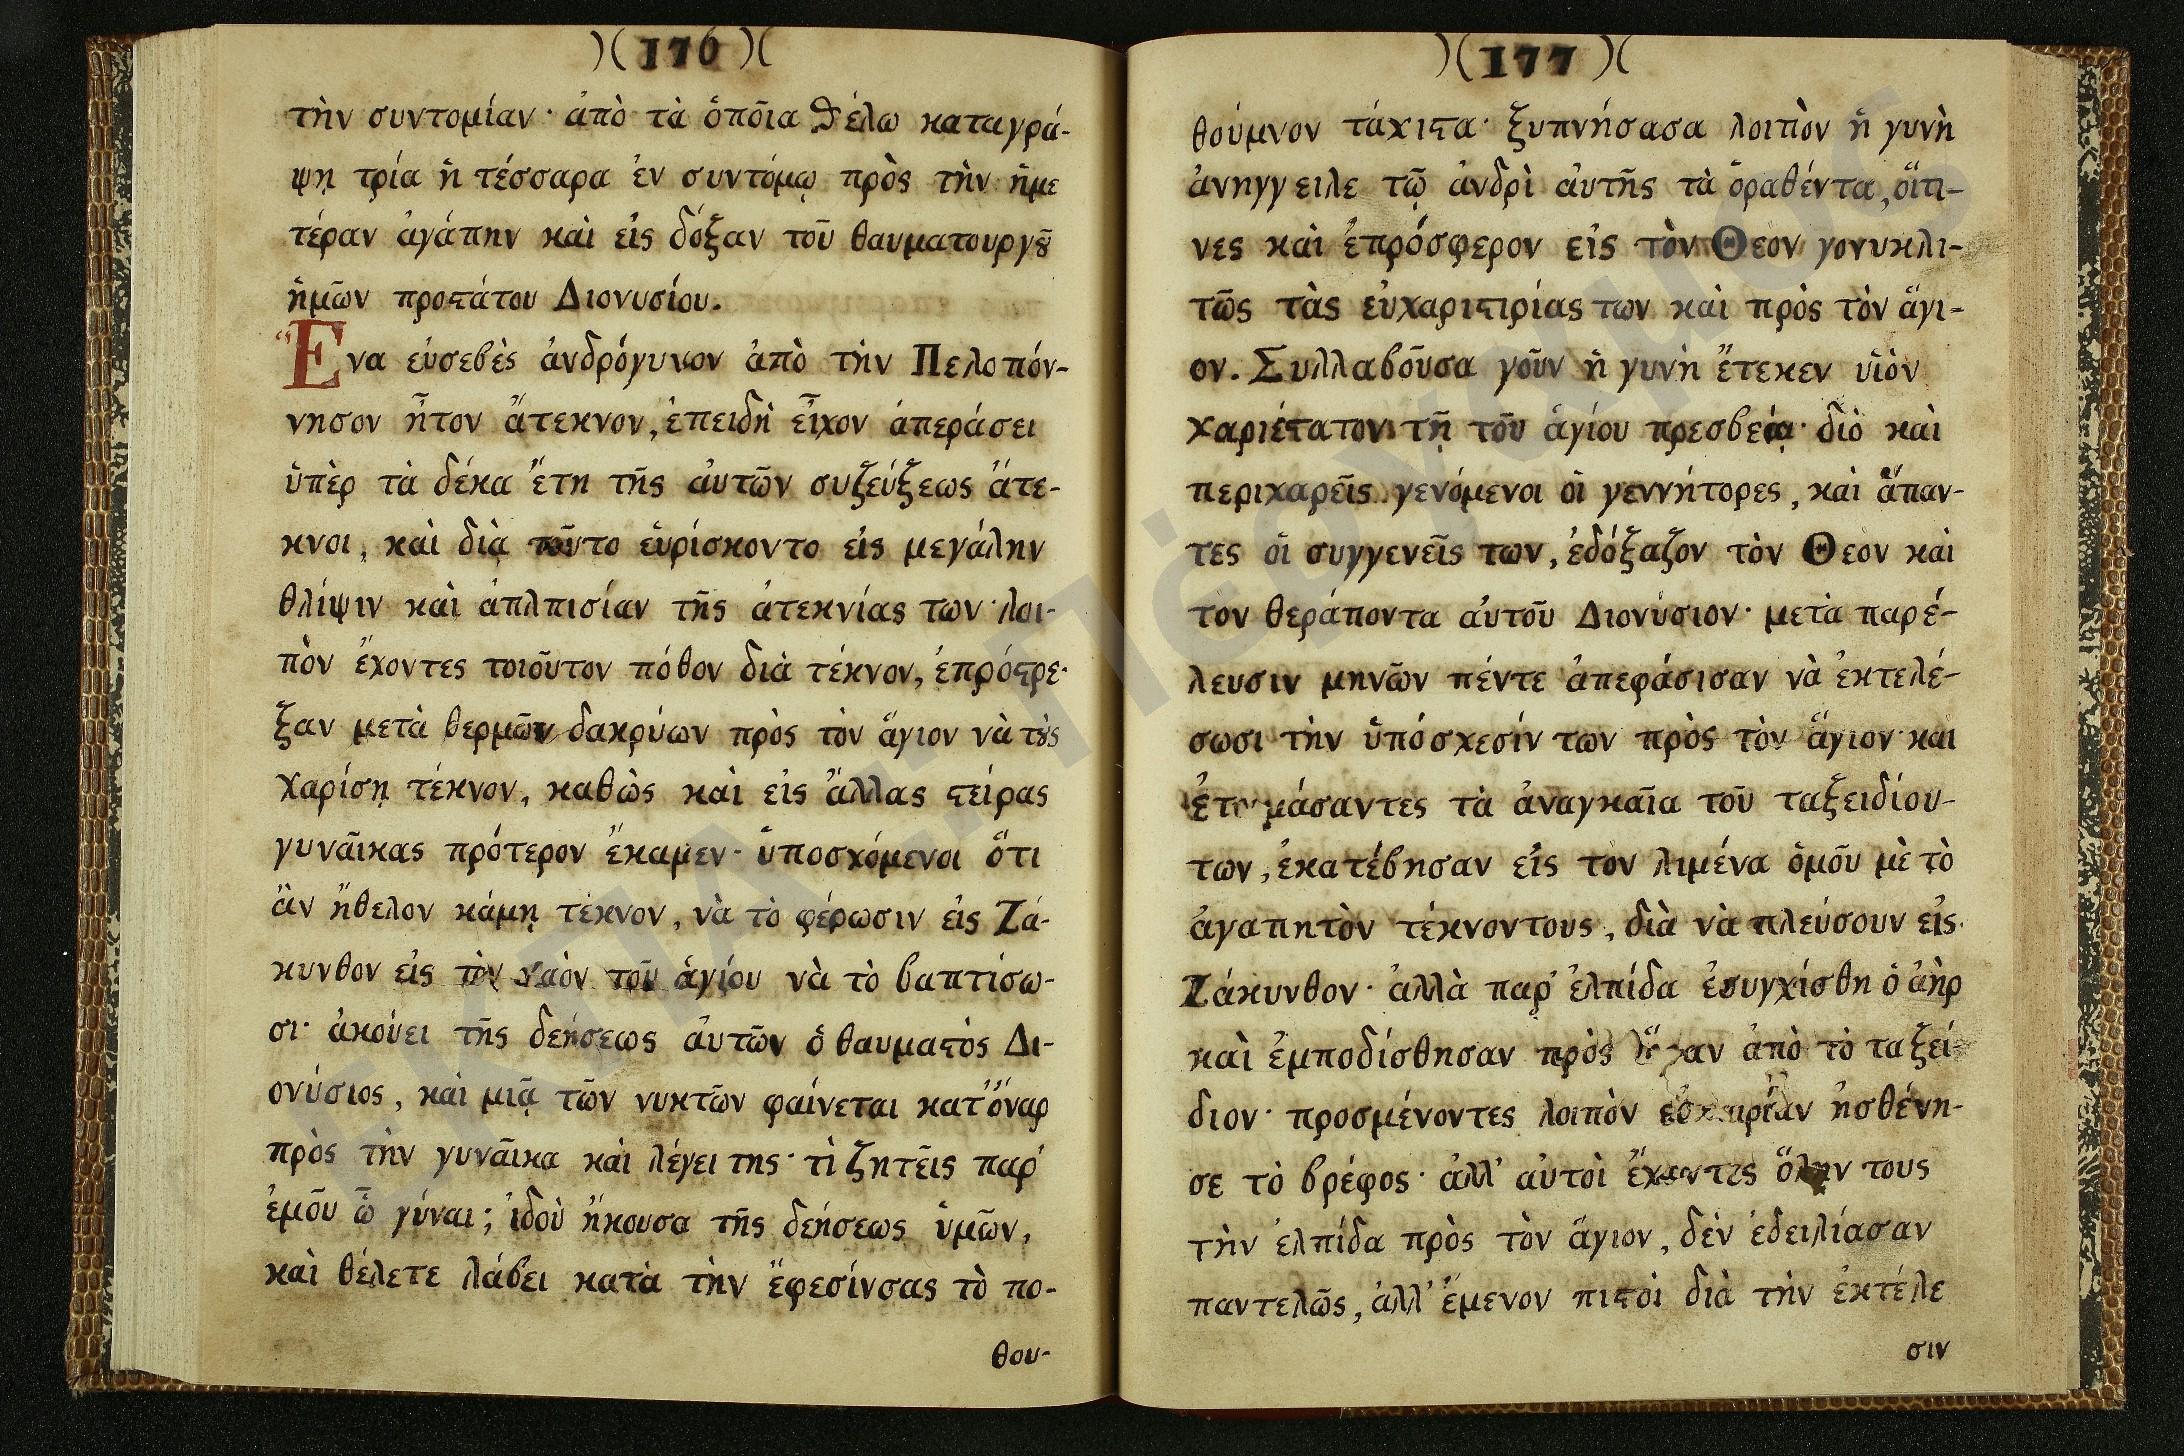 )( 176 )(
τὴν συντομίαν· ἀπὸ τὰ ὁποῖα θέλω καταγρά-
ψῃ τρία ἢ τέσσαρα ἐν συντόμῳ πρὸς τὴν ἡμε
τέραν ἀγάπην καὶ εἰς δόξαν τοῦ θαυματουργȣ͂
ἡμῶν προϛάτου Διονυσίου.
Ἕνα εὐσεβὲς ἀνδρόγυνον ἀπὸ τὴν Πελοπόν-
νησον ἦτον ἄτεκνον, ἐπειδὴ εἶχον ἀπεράσει
ὑπὲρ τὰ δέκα ἔτη τῆς αὐτῶν συζεύξεως ἄτε-
κνοι, καὶ διὰ τοῦτο εὑρίσκοντο εἰς μεγάλην
θλίψιν καὶ ἀπλπισίαν τῆς ἀτεκνίας των· λοι-
πὸν ἔχοντες τοιοῦτον πόθον διὰ τέκνον, ἐπρόϛρε-
ξαν μετὰ θερμῶν δακρύων πρὸς τὸν ἅγιον νὰ τȣ̀ς
χαρίσῃ τέκνον, καθὼς καὶ εἰς ἄλλας ϛείρας
γυναῖκας πρότερον ἔκαμεν· ὑποσχόμενοι ὅτι
ἂν ἤθελον κάμῃ τέκνον, νὰ τὸ φέρωσιν εἰς Ζά-
κυνθον εἰς τὸν ναὸν τοῦ ἁγίου νὰ τὸ βαπτίσω-
σι· ἀκούει τῆς δεήσεως αὐτῶν ὁ θαυμαϛὸς Δι-
ονύσιος, καὶ μιᾷ τῶν νυκτῶν φαίνεται κατ' ὄναρ
πρὸς τὴν γυναῖκα καὶ λέγει της· τὶ ζητεῖς παρ'
ἐμοῦ ὦ γύναι; ἰδοὺ ἤκουσα τῆς δεήσεως ὑμῶν,
καὶ θέλετε λάβει κατὰ τὴν ἔφεσίνσας τὸ πο-
θου-
)( 177 )(
θούμνον τάχιϛα· ξυπνήσασα λοιπὸν ἡ γυνὴ
ἀνηγγειλε τῷ ἀνδρὶ αὐτῆς τὰ ὁραθέντα, οἵτι-
νες καὶ ἐπρόσφερον εἰς τὸν Θεον γονυκλι-
τῶς τὰς εὐχαριϛιρίας των καὶ πρὸς τὸν ἅγι-
ον. Συλλαβοῦσα γοῦν ἡ γυνὴ ἔτεκεν υἱὸν
χαριέϛατον τῇ τοῦ ἁγίου πρεσβείᾳ· διὸ καὶ
περιχαρεῖς γενόμενοι οἱ γεννήτορες, καὶ ἅπαν-
τες οἱ συγγενεῖς των, ἐδόξαζον τὸν Θεον καὶ
τον θεράποντα αὐτοῦ Διονύσιον· μετὰ παρέ-
λευσιν μηνῶν πέντε ἀπεφάσισαν νὰ ἐκτελέ-
σωσι τὴν ὑπόσχεσίν των πρὸς τὸν ἅγιον· και
ἑτοιμάσαντες τὰ ἀναγκαῖα τοῦ ταξειδίου-
των, ἐκατέβησαν εἰς τον λιμένα ὁμοῦ μὲ τὸ
ἀγαπητὸν τέκνοντους, διὰ νὰ πλεύσουν εἰς
Ζάκυνθον· ἀλλὰ παρ' ἐλπίδα ἐσυγχίσθη ὁ ἀὴρ
καὶ ἐμποδίσθησαν πρὸς ὥραν ἀπὸ τὸ ταξεί-
διον· προσμένοντες λοιπὸν ἠσθένη-
σε τὸ βρέφος· ἀλλ' αὐτοὶ ἔχοντες ὅλην τους
τὴν ἐλπίδα πρὸς τὸν ἅγιον, δὲν ἐδειλίασαν
παντελῶς, ἀλλ' ἔμενον πιϛοὶ διὰ τὴν ἐκτέλε
σιν